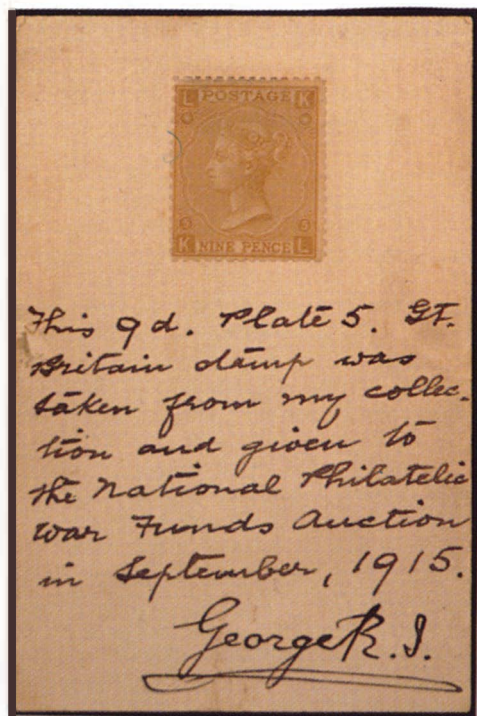 L POSTAGE K
5 5
K NINE PENCE L
This 9d. Plate 5. GT.
Britain stamp was
taken from my collec-
tion and given to
the National Philatelic
War Funds Auction
in September, 1915.
George R.I.